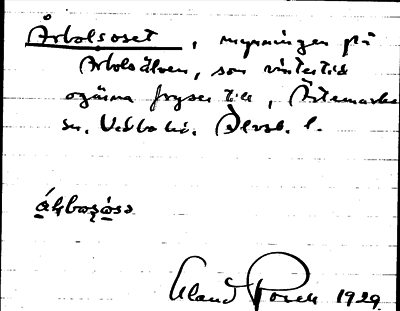 Årbolsoset, mynningen på
Årbolsälven, som vintertid
ogärna fryser till, Ärtemarks
sn. Vedbo hd. Älvsb. l.
Erland Rosell 1929